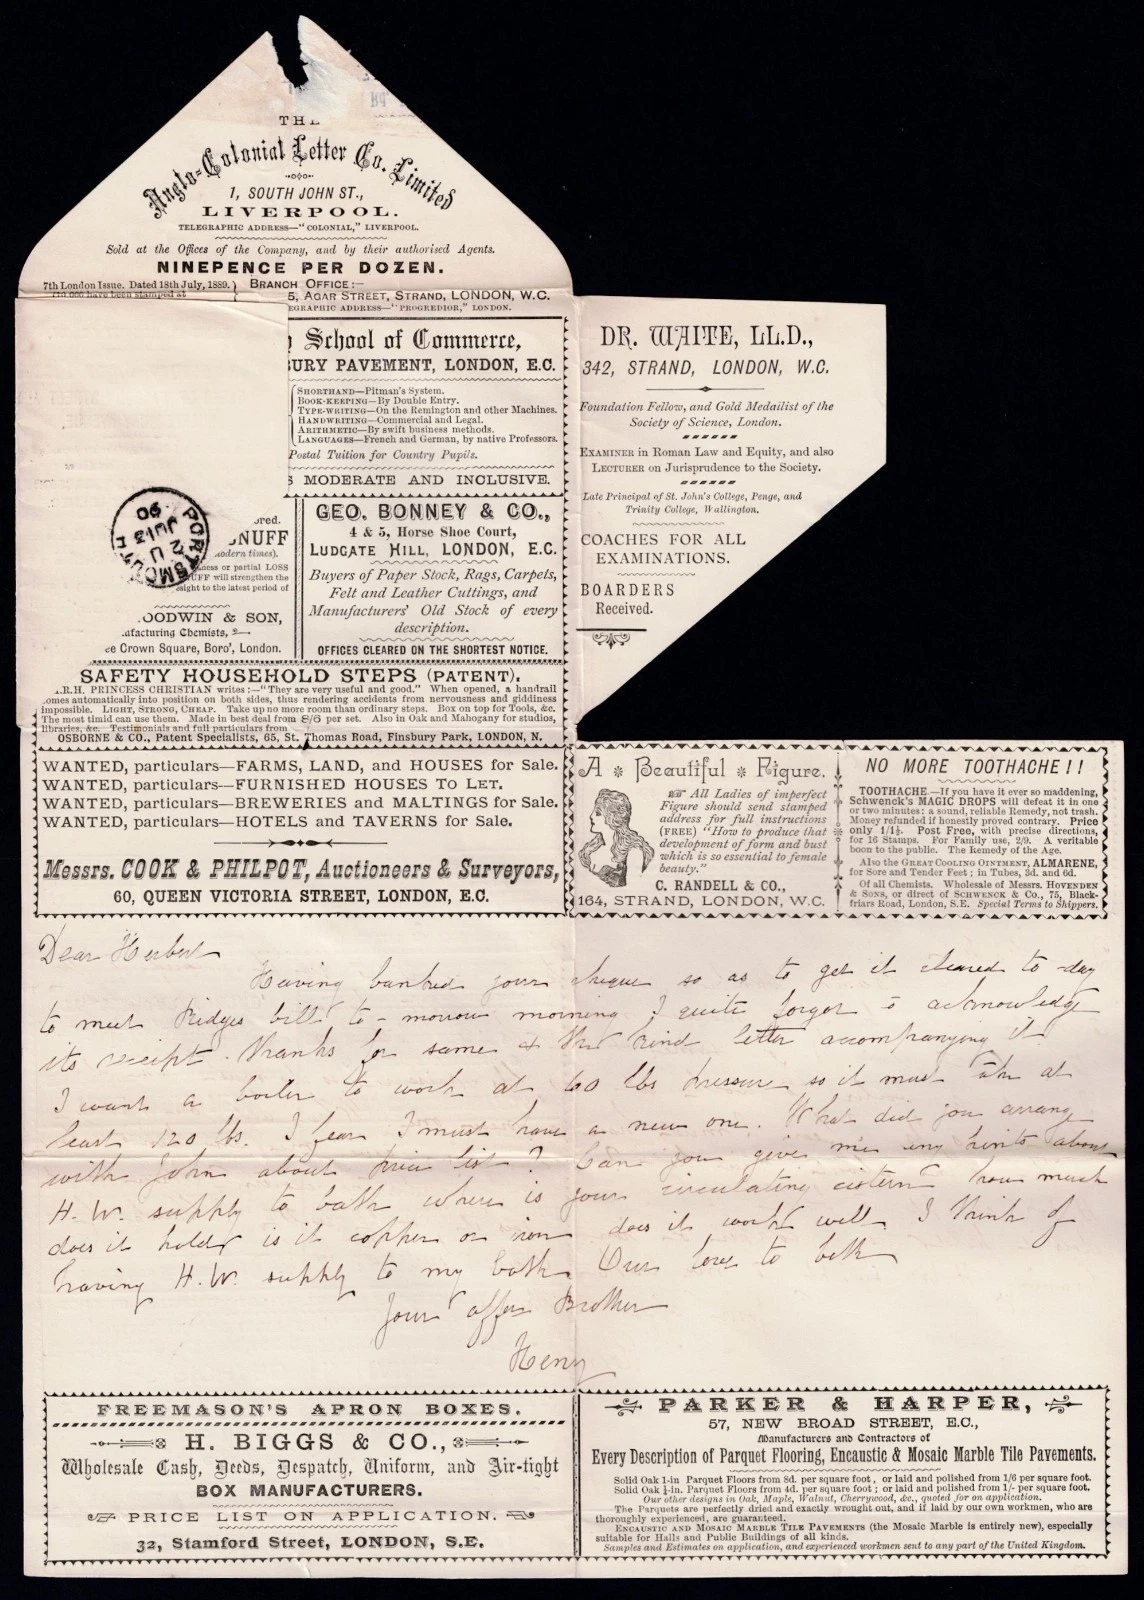 THE
Anglo-Colonial Letter Co. Limited
1, SOUTH JOHN ST.,
LIVERPOOL.
TELEGRAPHIC ADDRESS—"COLONIAL," LIVERPOOL.
Sold at the Offices of the Company, and by their authorised Agents.
NINEPENCE PER DOZEN.
7th London Issue. Dated 18th July, 1889.
have been stamped at
BRANCH OFFICE:—
5, AGAR STREET, STRAND, LONDON, W.C.
EGRAPHIC ADDRESS—"PROGREDIOR," LONDON.
School of Commerce,
BURY PAVEMENT, LONDON, E.C.
SHORTHAND—Pitman's System.
BOOK-KEEPING—By Double Entry.
TYPE-WRITING—On the Remington and other Machines.
HANDWRITING—Commercial and Legal.
ARITHMETIC—By swift business methods.
LANGUAGES—French and German, by native Professors.
Postal Tuition for Country Pupils.
S MODERATE AND INCLUSIVE.
DR. WAITE, LL.D.,
342, STRAND, LONDON, W.C.
Foundation Fellow, and Gold Medailist of the
Society of Science, London.
EXAMINER in Roman Law and Equity, and also
LECTURER on Jurisprudence to the Society.
Late Principal of St. John's College, Penge, and
Trinity College, Wallington.
COACHES FOR ALL
EXAMINATIONS.
BOARDERS
Received.
PORTSMOUTH
2 U
JU 13
90
ored.
NUFF
odern times).
ness or partial LOSS
UFF will strengthen the
sight to the latest period of
OODWIN & SON,
ufacturing Chemists,
ee Crown Square, Boro', London.
GEO. BONNEY & CO.,
4 & 5, Horse Shoe Court,
LUDGATE HILL, LONDON, E.C.
Buyers of Paper Stock, Rags, Carpets,
Felt and Leather Cuttings, and
Manufacturers' Old Stock of every
description.
OFFICES CLEARED ON THE SHORTEST NOTICE.
SAFETY HOUSEHOLD STEPS (PATENT).
.R.H. PRINCESS CHRISTIAN writes:—"They are very useful and good." When opened, a handrail
omes automatically into position on both sides, thus rendering accidents from nervousness and giddiness
impossible. LIGHT, STRONG, CHEAP. Take up no more room than ordinary steps. Box on top for Tools, &c.
The most timid can use them. Made in best deal from 8/6 per set. Also in Oak and Mahogany for studios,
libraries, &c. Testimonials and full particulars from
OSBORNE & CO., Patent Specialists, 65, St. Thomas Road, Finsbury Park, LONDON, N.
WANTED, particulars—FARMS, LAND, and HOUSES for Sale.
WANTED, particulars—FURNISHED HOUSES TO LET.
WANTED, particulars—BREWERIES and MALTINGS for Sale.
WANTED, particulars—HOTELS and TAVERNS for Sale.
Messrs. COOK & PHILPOT, Auctioneers & Surveyors,
60, QUEEN VICTORIA STREET, LONDON, E.C.
A Beautiful Figure.
All Ladies of imperfect
Figure should send stamped
address for full instructions
(FREE) "How to produce that
development of form and bust
which is so essential to female
beauty."
C. RANDELL & CO.,
164, STRAND, LONDON, W.C.
NO MORE TOOTHACHE!!
TOOTHACHE.—If you have it ever so maddening,
Schwenck's MAGIC DROPS will defeat it in one
or two minutes: a sound, reliable Remedy, not trash.
Money refunded if honestly proved contrary. Price
only 1/1½. Post Free, with precise directions,
for 16 Stamps. For Family use, 2/9. A veritable
boon to the public. The Remedy of the Age.
Also the GREAT COOLING OINTMENT, ALMARENE,
for Sore and Tender Feet; in Tubes, 3d. and 6d.
Of all Chemists. Wholesale of Messrs. HOVENDEN
& SONS, or direct of SCHWENCK & CO., 75, Black-
friars Road, London, S.E. Special Terms to Shippers.
Dear Herbert
Having banked your cheque so as to get it cleared to-day
to meet Ridges bill to-morrow morning I quite forgot to acknowledge
its receipt. Thanks for same & the kind letter accompanying it
I want a boiler to work at 60 lbs pressure so it must take at
least 120 lbs. I fear I must have a new one. What did you arrange
with John about price list? Can you give me any hints about
H.W. supply to bath where is your circulating cistern how much
does it hold is it copper or iron does it work well I think of
having H.W. supply to my bath. Our love to both
Your affec Brother
Henry
FREEMASON'S APRON BOXES.
H. BIGGS & CO.,
Wholesale Cash, Deeds, Despatch, Uniform, and Air-tight
BOX MANUFACTURERS.
PRICE LIST ON APPLICATION.
32, Stamford Street, LONDON, S.E.
PARKER & HARPER,
57, NEW BROAD STREET, E.C.,
Manufacturers and Contractors of
Every Description of Parquet Flooring, Encaustic & Mosaic Marble Tile Pavements.
Solid Oak 1-in Parquet Floors from 8d. per square foot, or laid and polished from 1/6 per square foot.
Solid Oak ¼-in. Parquet Floors from 4d. per square foot; or laid and polished from 1/- per square foot.
Our other designs in Oak, Maple, Walnut, Cherrywood, &c., quoted for on application.
The Parquets are perfectly dried and exactly wrought out, and if laid by our own workmen, who are
thoroughly experienced, are guaranteed.
ENCAUSTIC AND MOSAIC MARBLE TILE PAVEMENTS (the Mosaic Marble is entirely new), especially
suitable for Halls and Public Buildings of all kinds.
Samples and Estimates on application, and experienced workmen sent to any part of the United Kingdom.